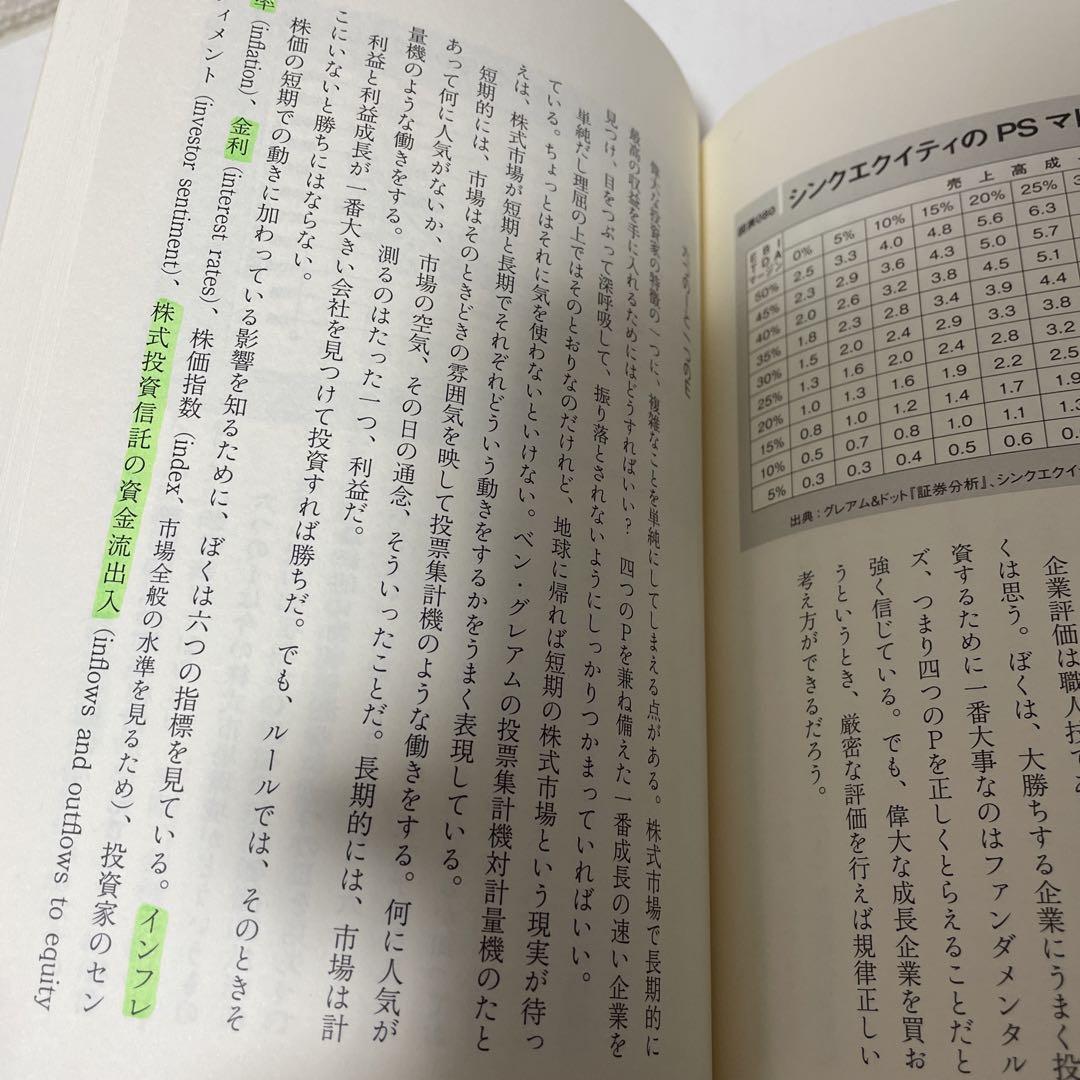 シンクエクイティのPSマ
図表080
売上高成
EBITDAマージン
0% 5% 10% 15% 20% 25%
50% 2.5 3.3 4.0 4.8 5.6 6.3
45% 2.3 2.9 3.6 4.3 5.0 5.7
40% 2.0 2.6 3.2 3.8 4.5 5.1
35% 1.8 2.3 2.8 3.4 3.9 4.4
30% 1.5 2.0 2.4 2.9 3.3 3.8
25% 1.3 1.6 2.0 2.4 2.8 3.2
20% 1.0 1.3 1.6 1.9 2.2 2.5
15% 0.8 1.0 1.2 1.4 1.7 1.9
10% 0.5 0.7 0.8 1.0 1.1 1.3
5% 0.3 0.3 0.4 0.5 0.6 0.
出典:グレアム&ドット『証券分析』、シンクエクイテ
企業評価は職人技であ
くは思う。ぼくは、大勝ちする企業にうまく投
資するために一番大事なのはファンダメンタル
ズ、つまり四つのPを正しくとらえることだと
強く信じている。でも、偉大な成長企業を買お
うというとき、厳密な評価を行えば規律正しい
考え方ができるだろう。
偉大な投資家の特徴の一つに、複雑なことを単純にしてしまえる点がある。株式市場で長期的に
最高の収益を手に入れるためにはどうすればいい? 四つのPを兼ね備えた一番成長の速い企業を
見つけ、目をつぶって深呼吸して、振り落とされないようにしっかりつかまっていればいい。
単純だし理屈の上ではそのとおりなのだけれど、地球に帰れば短期の株式市場という現実が待っ
ている。ちょっとはそれに気を使わないといけない。ベン・グレアムの投票集計機対計量機のたと
えは、株式市場が短期と長期でそれぞれどういう動きをするかをうまく表現している。
短期的には、市場はそのときどきの雰囲気を映して投票集計機のような働きをする。何に人気が
あって何に人気がないか、市場の空気、その日の通念、そういったことだ。長期的には、市場は計
量機のような働きをする。測るのはたった一つ、利益だ。
利益と利益成長が一番大きい会社を見つけて投資すれば勝ちだ。でも、ルールでは、そのときそ
こにいないと勝ちにはならない。
株価の短期での動きに加わっている影響を知るために、ぼくは六つの指標を見ている。インフレ
率(inflation)、金利(interest rates)、株価指数(index、市場全般の水準を見るため)、投資家のセン
ティメント(investor sentiment)、株式投資信託の資金流出入(inflows and outflows to equity